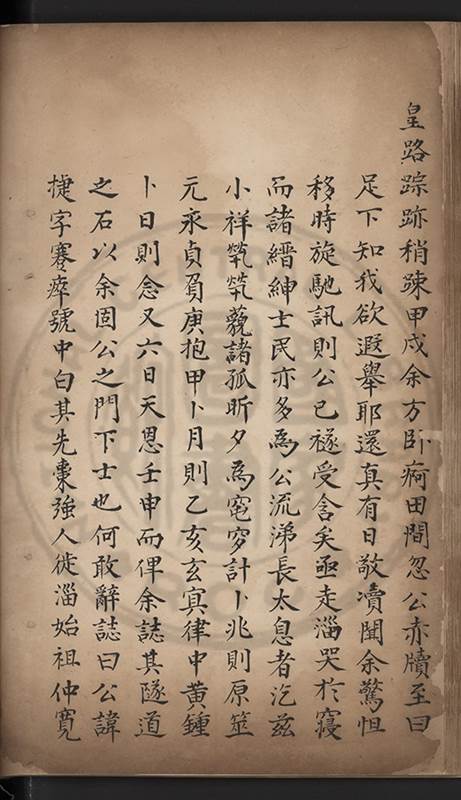 皇路踪跡稍踈甲戌余方卧痾田間忽公赤牘至曰
足下知我欲遐舉耶還真有日敬凟聞余驚怛
移時旋馳訊則公已襚受含矣亟走淄哭於寢
而諸縉紳士民亦多為公流涕長太息者汔茲
小祥煢煢藐諸孤昕夕為窀穸計卜兆則原筮
元永貞負庚抱甲卜月則乙亥玄㝠律中黃鍾
卜日則念又六日天恩壬申而俾余誌其隧道
之石以余固公之門下士也何敢辭誌曰公諱
捷字賽瘁號中白其先棗強人徙淄始祖仲寬